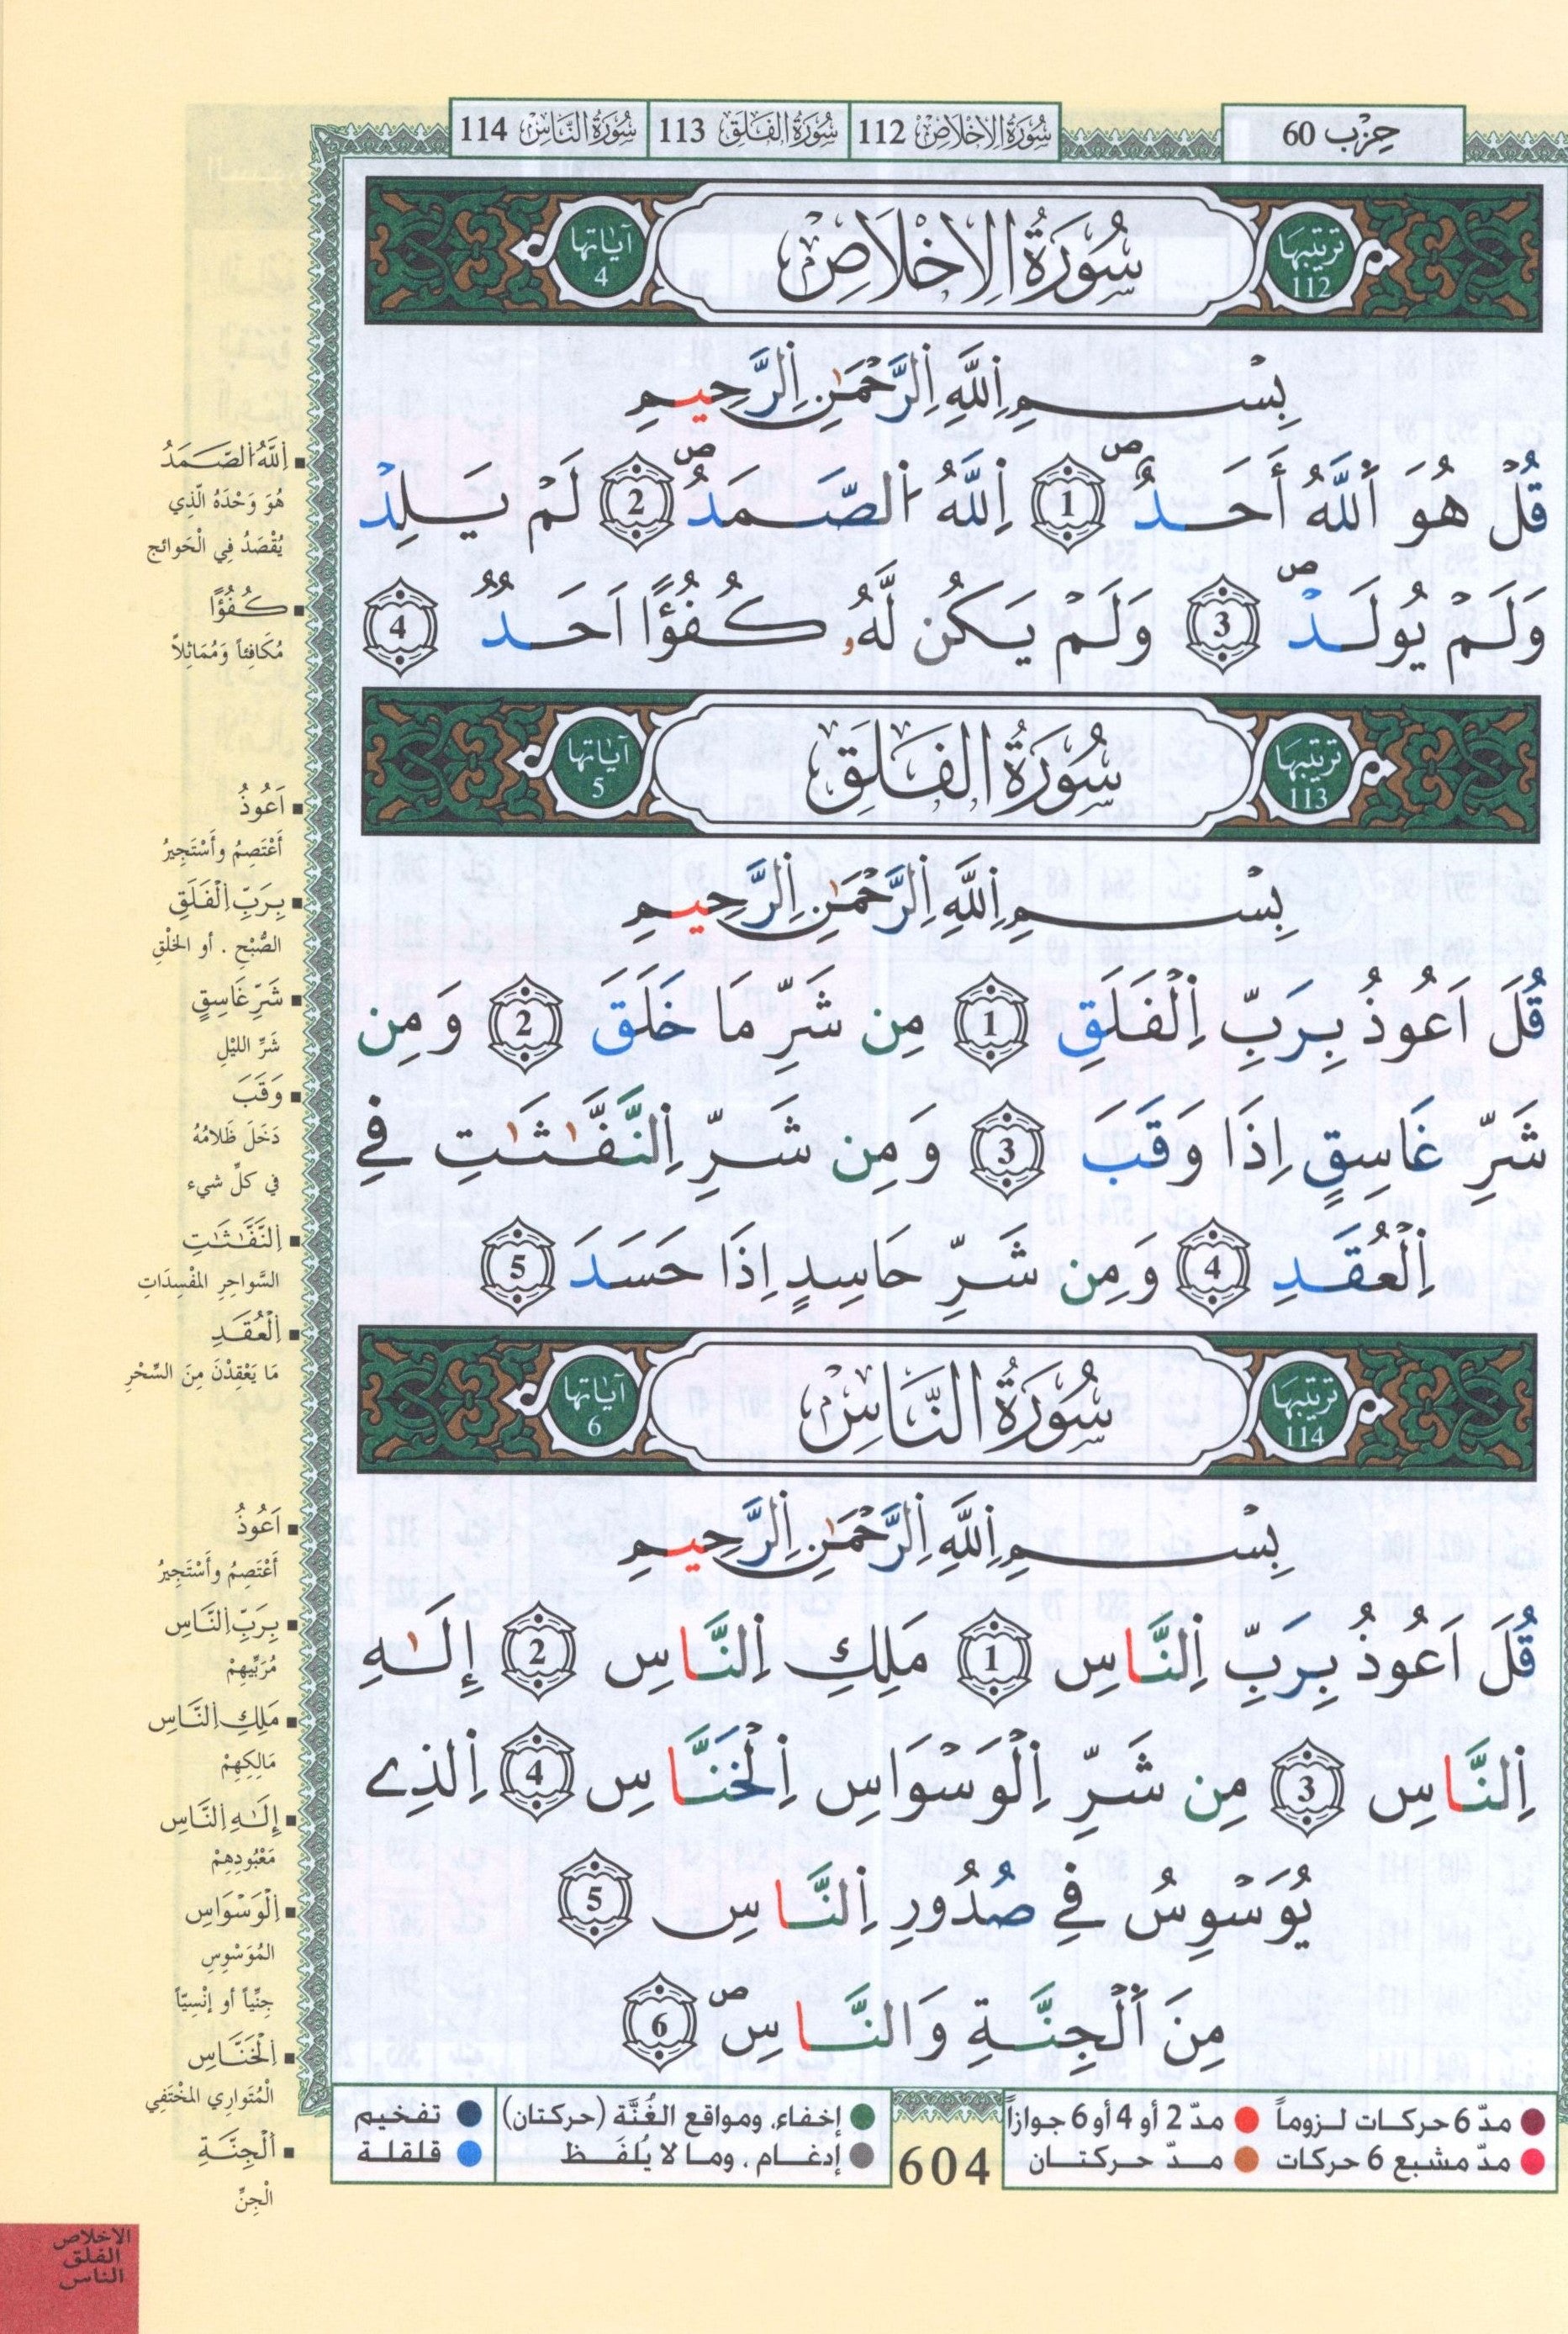 حِزْب 60
سُورَةُ الإِخْلَاصِ 112
سُورَةُ الفَلَقِ 113
سُورَةُ النَّاسِ 114
ترتيبها 112
سُورَةُ الإِخْلَاصِ
آياتها 4
بِسْمِ اِ۬للَّهِ اِ۬لرَّحْمَٰنِ اِ۬لرَّحِيمِ
قُلْ هُوَ اَ۬للَّهُ أَحَدٌۖ 1 اِ۬للَّهُ اُ۬لصَّمَدُۖ 2 لَمْ يَلِدْ
وَلَمْ يُولَدْۖ 3 وَلَمْ يَكُن لَّهُۥ كُفُؤًا اَحَدٌ 4
ترتيبها 113
سُورَةُ الفَلَقِ
آياتها 5
بِسْمِ اِ۬للَّهِ اِ۬لرَّحْمَٰنِ اِ۬لرَّحِيمِ
قُلَ اَعُوذُ بِرَبِّ اِ۬لْفَلَقِ 1 مِن شَرِّ مَا خَلَقَ 2 وَمِن
شَرِّ غَاسِقٍ اِذَا وَقَبَ 3 وَمِن شَرِّ اِ۬لنَّفَّٰثَٰتِ فِے
اِ۬لْعُقَدِ 4 وَمِن شَرِّ حَاسِدٍ اِذَا حَسَدَ 5
ترتيبها 114
سُورَةُ النَّاسِ
آياتها 6
بِسْمِ اِ۬للَّهِ اِ۬لرَّحْمَٰنِ اِ۬لرَّحِيمِ
قُلَ اَعُوذُ بِرَبِّ اِ۬لنَّاسِ 1 مَلِكِ اِ۬لنَّاسِ 2 إِلَٰهِ
اِ۬لنَّاسِ 3 مِن شَرِّ اِ۬لْوَسْوَاسِ اِ۬لْخَنَّاسِ 4 اِ۬لذِے
يُوَسْوِسُ فِے صُدُورِ اِ۬لنَّاسِ 5
مِنَ اَ۬لْجِنَّةِ وَالنَّاسِۖ 6
اِ۬للَّهُ اُ۬لصَّمَدُ
هُوَ وَحْدَهُ الَّذِي
يُقْصَدُ فِي الْحَوائج
كُفُؤًا
مُكَافِئاً وَمُمَاثِلاً
اَعُوذُ
أَعْتَصِمُ وأَسْتَجِيرُ
بِرَبِّ اِ۬لْفَلَقِ
الصُّبْحِ . أو الخلْقِ
شَرِّ غَاسِقٍ
شَرِّ الليْلِ
وَقَبَ
دَخَلَ ظَلامُهُ
في كلِّ شيء
اِ۬لنَّفَّٰثَٰتِ
السَّواحِرِ المفْسِدَاتِ
اِ۬لْعُقَدِ
مَا يَعْقِدْنَ مِنَ السِّحْرِ
اَعُوذُ
أَعْتَصِمُ وأَسْتَجِيرُ
بِرَبِّ اِ۬لنَّاسِ
مُرَبِّيهِمْ
مَلِكِ اِ۬لنَّاسِ
مَالِكِهِمْ
إِلَٰهِ اِ۬لنَّاسِ
مَعْبُودِهِمْ
اِ۬لْوَسْوَاسِ
المُوَسْوِسِ
جِنِّياً أو إنْسِيّاً
اِ۬لْخَنَّاسِ
الْمُتَوارِي المخْتَفِي
اَ۬لْجِنَّةِ
الْجِنِّ
مدّ 6 حركات لـزوماً
مدّ 2 أو 4 أو 6 جوازاً
مدّ مشبع 6 حركات
مــدّ حـركتــان
604
إخفاء، ومواقع الغُنَّة (حركتان)
إدغــام ، ومـا لا يُلفَـظ
تفخيم
قلقلة
الإخلاص
الفلق
الناس